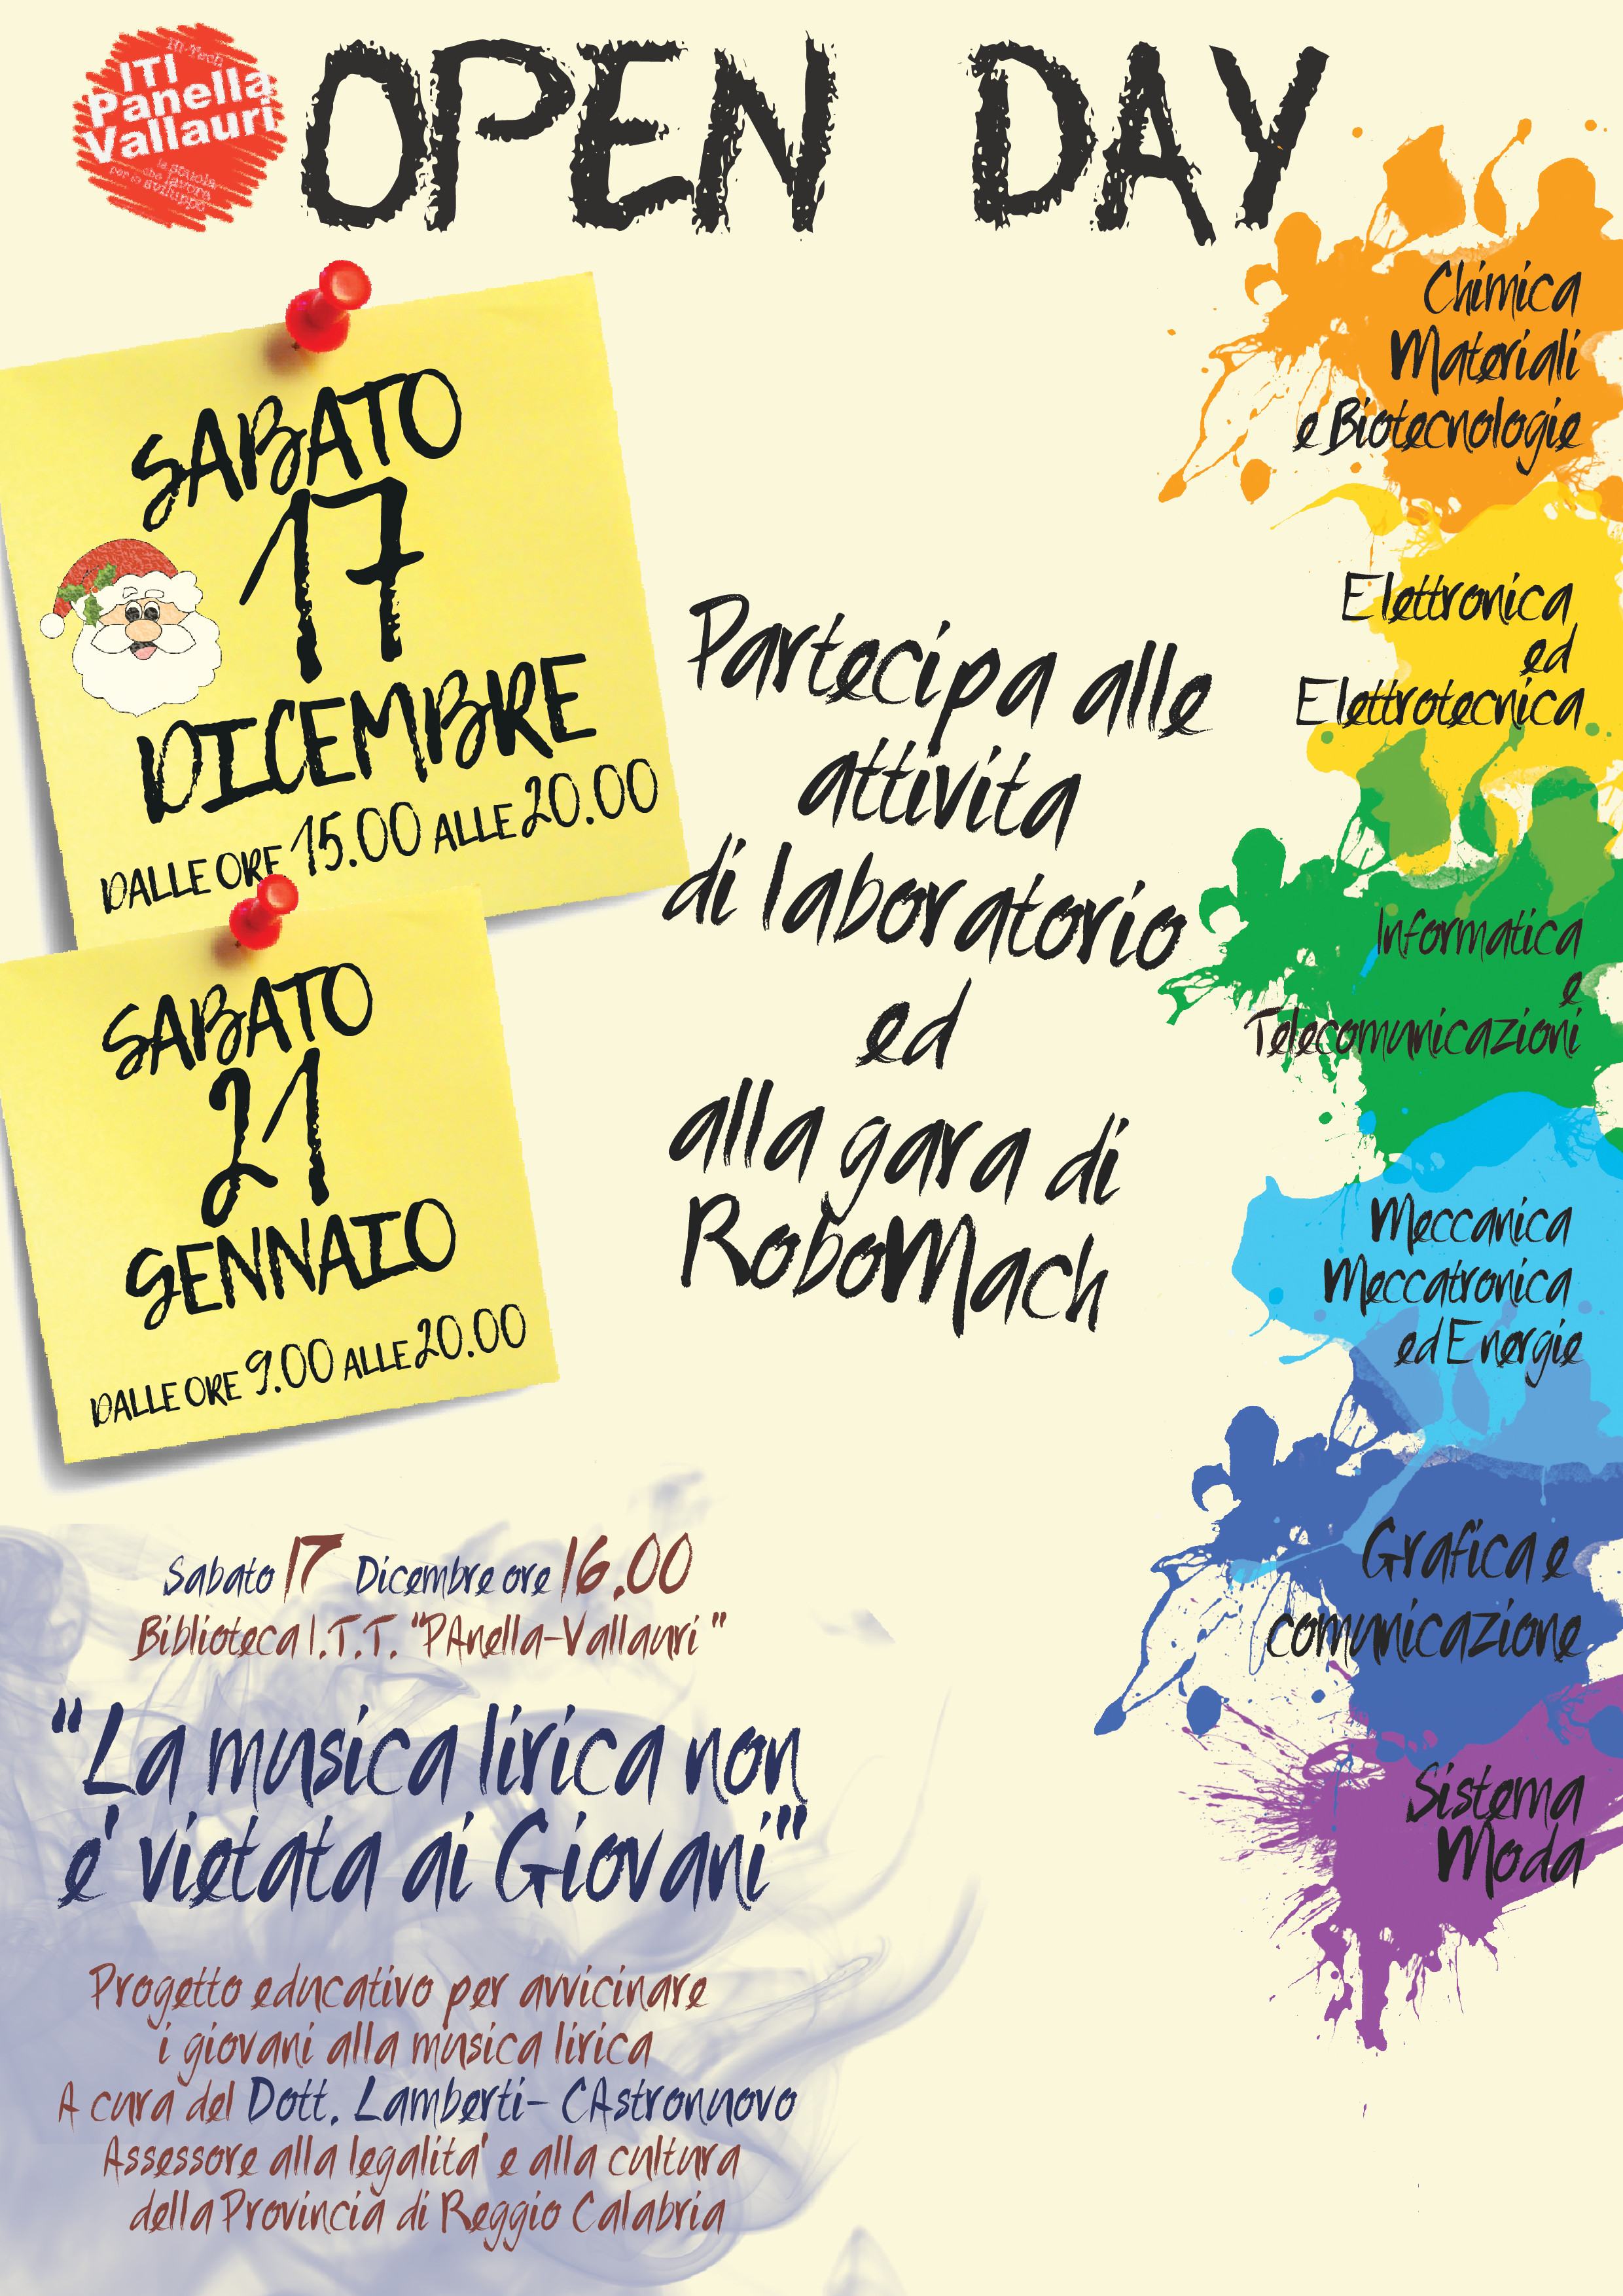 Hi-Tech
ITI
Panella
Vallauri
la scuola
che lavora
per lo sviluppo
OPEN DAY
SABATO
17
DICEMBRE
DALLE ORE 15.00 ALLE 20.00
SABATO
21
GENNAIO
DALLE ORE 9.00 ALLE 20.00
Partecipa alle
attivita
di laboratorio
ed
alla gara di
RoboMach
Chimica
Materiali
e Biotecnologie
Elettronica
ed
Elettrotecnica
Informatica
e
Telecomunicazioni
Meccanica
Meccatronica
ed Energie
Grafica e
comunicazione
Sistema
Moda
Sabato 17 Dicembre ore 16.00
Biblioteca I.T.T. "PAnella-Vallauri"
"La musica lirica non
e' vietata ai Giovani"
Progetto educativo per avvicinare
i giovani alla musica lirica
A cura del Dott. Lamberti- CAstronuovo
Assessore alla legalita' e alla cultura
della Provincia di Reggio Calabria